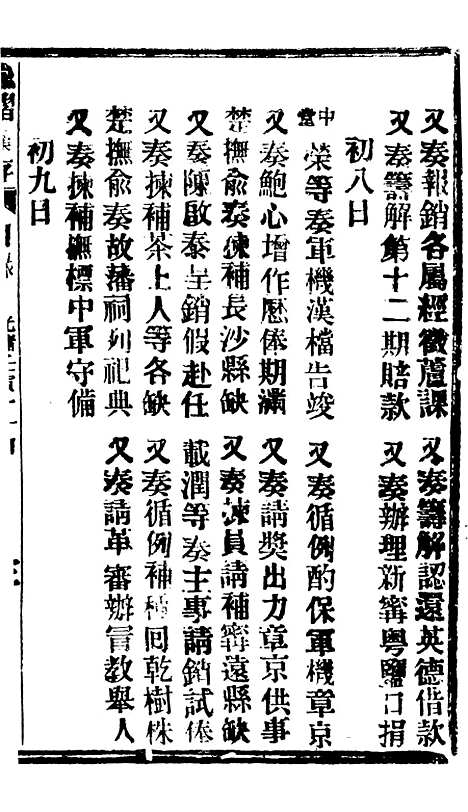 又奏報銷各屬經徵蘆課
又奏籌解認還英德借款
又奏籌解第十二期賠款
又奏辦理新甯粵鹽口捐
初八日
中堂榮等奏軍機漢檔告竣
又奏循例酌保軍機章京
又奏鮑心增作歷俸期滿
又奏請獎出力章京供事
楚撫俞奏揀補長沙縣缺
又奏揀員請補甯遠縣缺
又奏陳啟泰呈銷假赴任
載潤等奏主事請銷試俸
又奏揀補茶上人等各缺
又奏循例補種回乾樹株
楚撫俞奏故藩祠列祀典
又奏請革審辦冒教舉人
又奏揀補撫標中軍守備
初九日